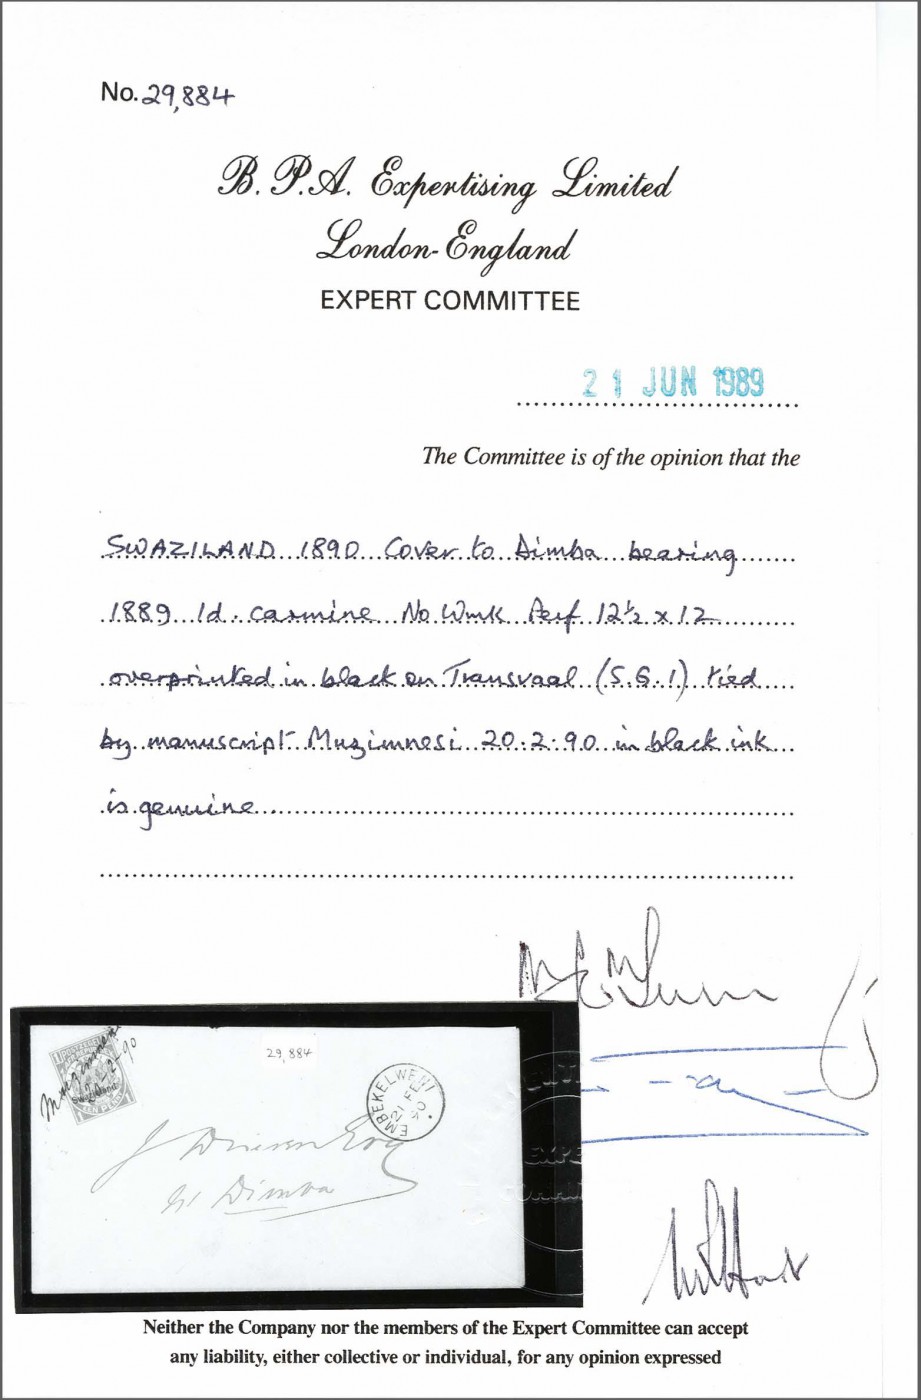 No. 29,884
B. P. A. Expertising Limited
London-England
EXPERT COMMITTEE
21 JUN 1989
The Committee is of the opinion that the
SWAZILAND 1890 Cover to Dimba bearing
1889 1d. carmine No Wmk Perf 12½ x 12
overprinted in black on Transvaal (S.G. 1) tied
by manuscript Muzimnesi 20.2.90 in black ink
is genuine
29,884
20-2-90
Swazieland
EEN PENNY
EMBEKELWENI
21 FE
90
Esq
Dimba
Neither the Company nor the members of the Expert Committee can accept
any liability, either collective or individual, for any opinion expressed